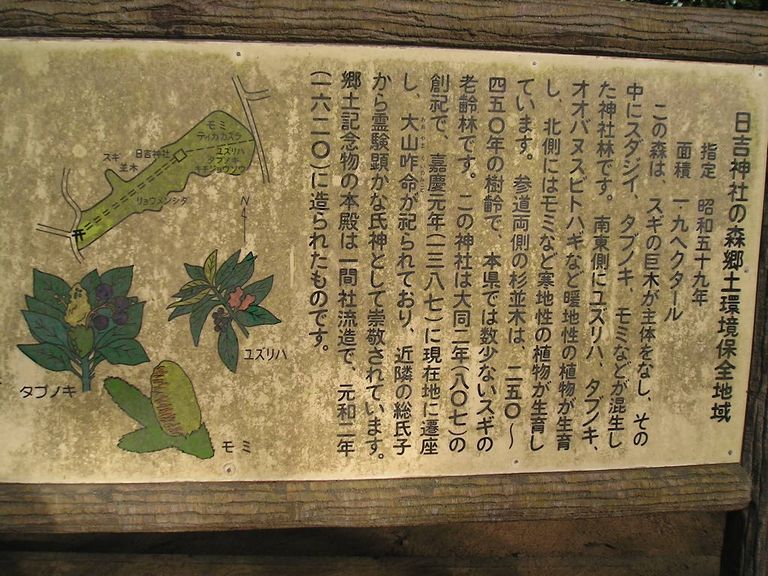 日吉神社の森郷土環境保全地域
指定　昭和五十九年
面積　一・九ヘクタール
この森は、スギの巨木が主体をなし、その
中にスダジイ、タブノキ、モミなどが混生し
た神社林です。南東側にユズリハ、タブノキ、
オオバヌスビトハギなど暖地性の植物が生育
し、北側にはモミなど寒地性の植物が生育し
ています。参道両側の杉並木は、二五〇〜
四五〇年の樹齢で、本県では数少ないスギの
老齢林です。この神社は大同二年(八〇七)の
創祀で、嘉慶元年(一三八七)に現在地に遷座
し、大山咋命が祀られており、近隣の総氏子
から霊験顕かな氏神として崇敬されています。
郷土記念物の本殿は一間社流造で、元和二年
(一六二〇)に造られたものです。
モミ
テイカカズラ
ユズリハ
タブノキ
キチジョウソウ
日吉神社
スギ
並木
リョウメンシダ
N
タブノキ
ユズリハ
モミ